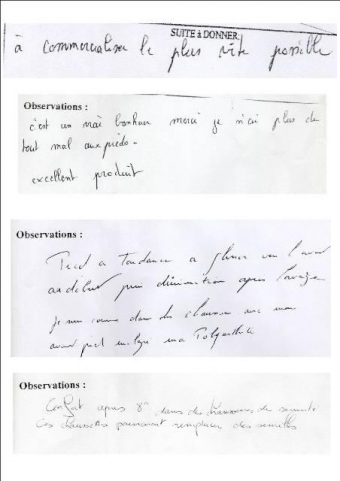 SUITE à DONNER
à commercialiser le plus vite possible
Observations :
c'est un vrai bonheur merci je n'ai plus du
tout mal aux pieds.
excellent produit
Observations :
Pied a Tendance a glisser vers l'avant
au début puis diminution apres lavage
Je suis comme dans des chaussures avec mon
avant pied
Observations :
Confort apres 8h dans des chaussures de sécurité
Ces chaussettes pourraient remplacer des semelles